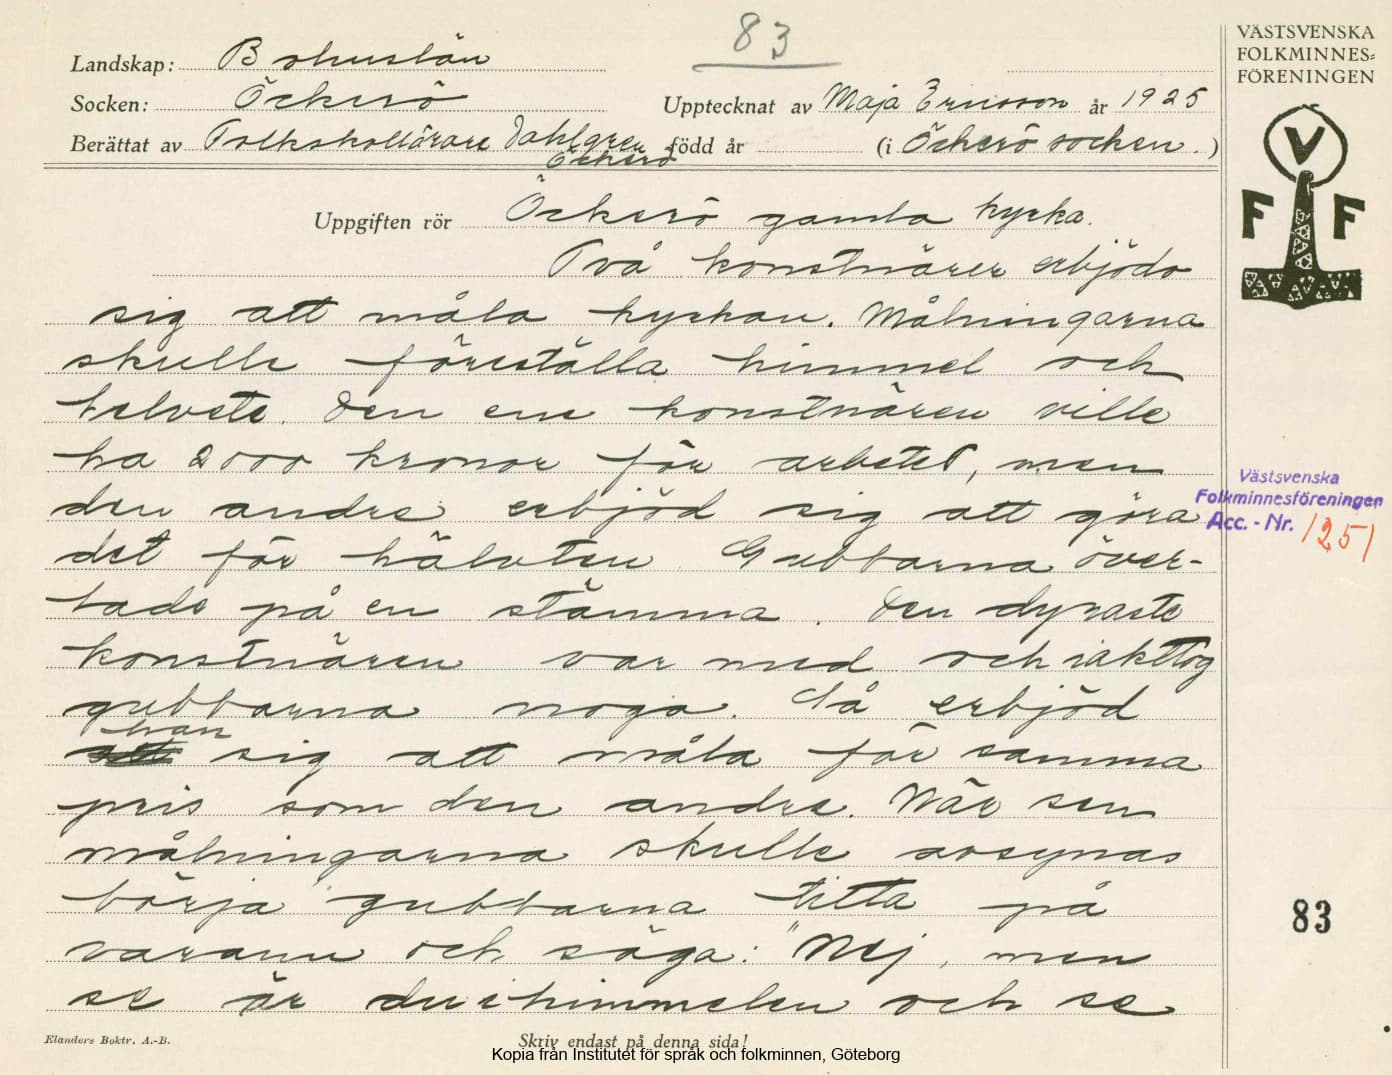 83
VÄSTSVENSKA
FOLKMINNES=
FÖRENINGEN
Landskap: Bohuslän
Socken: Öckerö
Upptecknat av Maja Ericsson år 1925
Berättat av Folkskollärare Dahlgren född år (i Öckerö socken.)
Öckerö
V
F F
Uppgiften rör Öckerö gamla kyrka.
Två konstnärer erbjödo
sig att måla kyrkan. Målningarna
skulle föreställa himmel och
helvete. Den ene konstnären ville
ha 2000 kronor för arbetet, men
den andre erbjöd sig att göra
det för hälvten Gubbarna över-
lade på en stämma. Den dyraste
konstnären var med och iakttog
gubbarna noga. Så erbjöd
han
sig att måla för samma
pris som den andre. När sen
målningarna skulle avsynas
börja gubbarna titta på
varann och säga: "Nej, men
se är du i himmelen och se
Västsvenska
Folkminnesföreningen
Acc. - Nr. 1251
83
Elanders Boktr. A.-B.
Skriv endast på denna sida!
Kopia från Institutet för språk och folkminnen, Göteborg